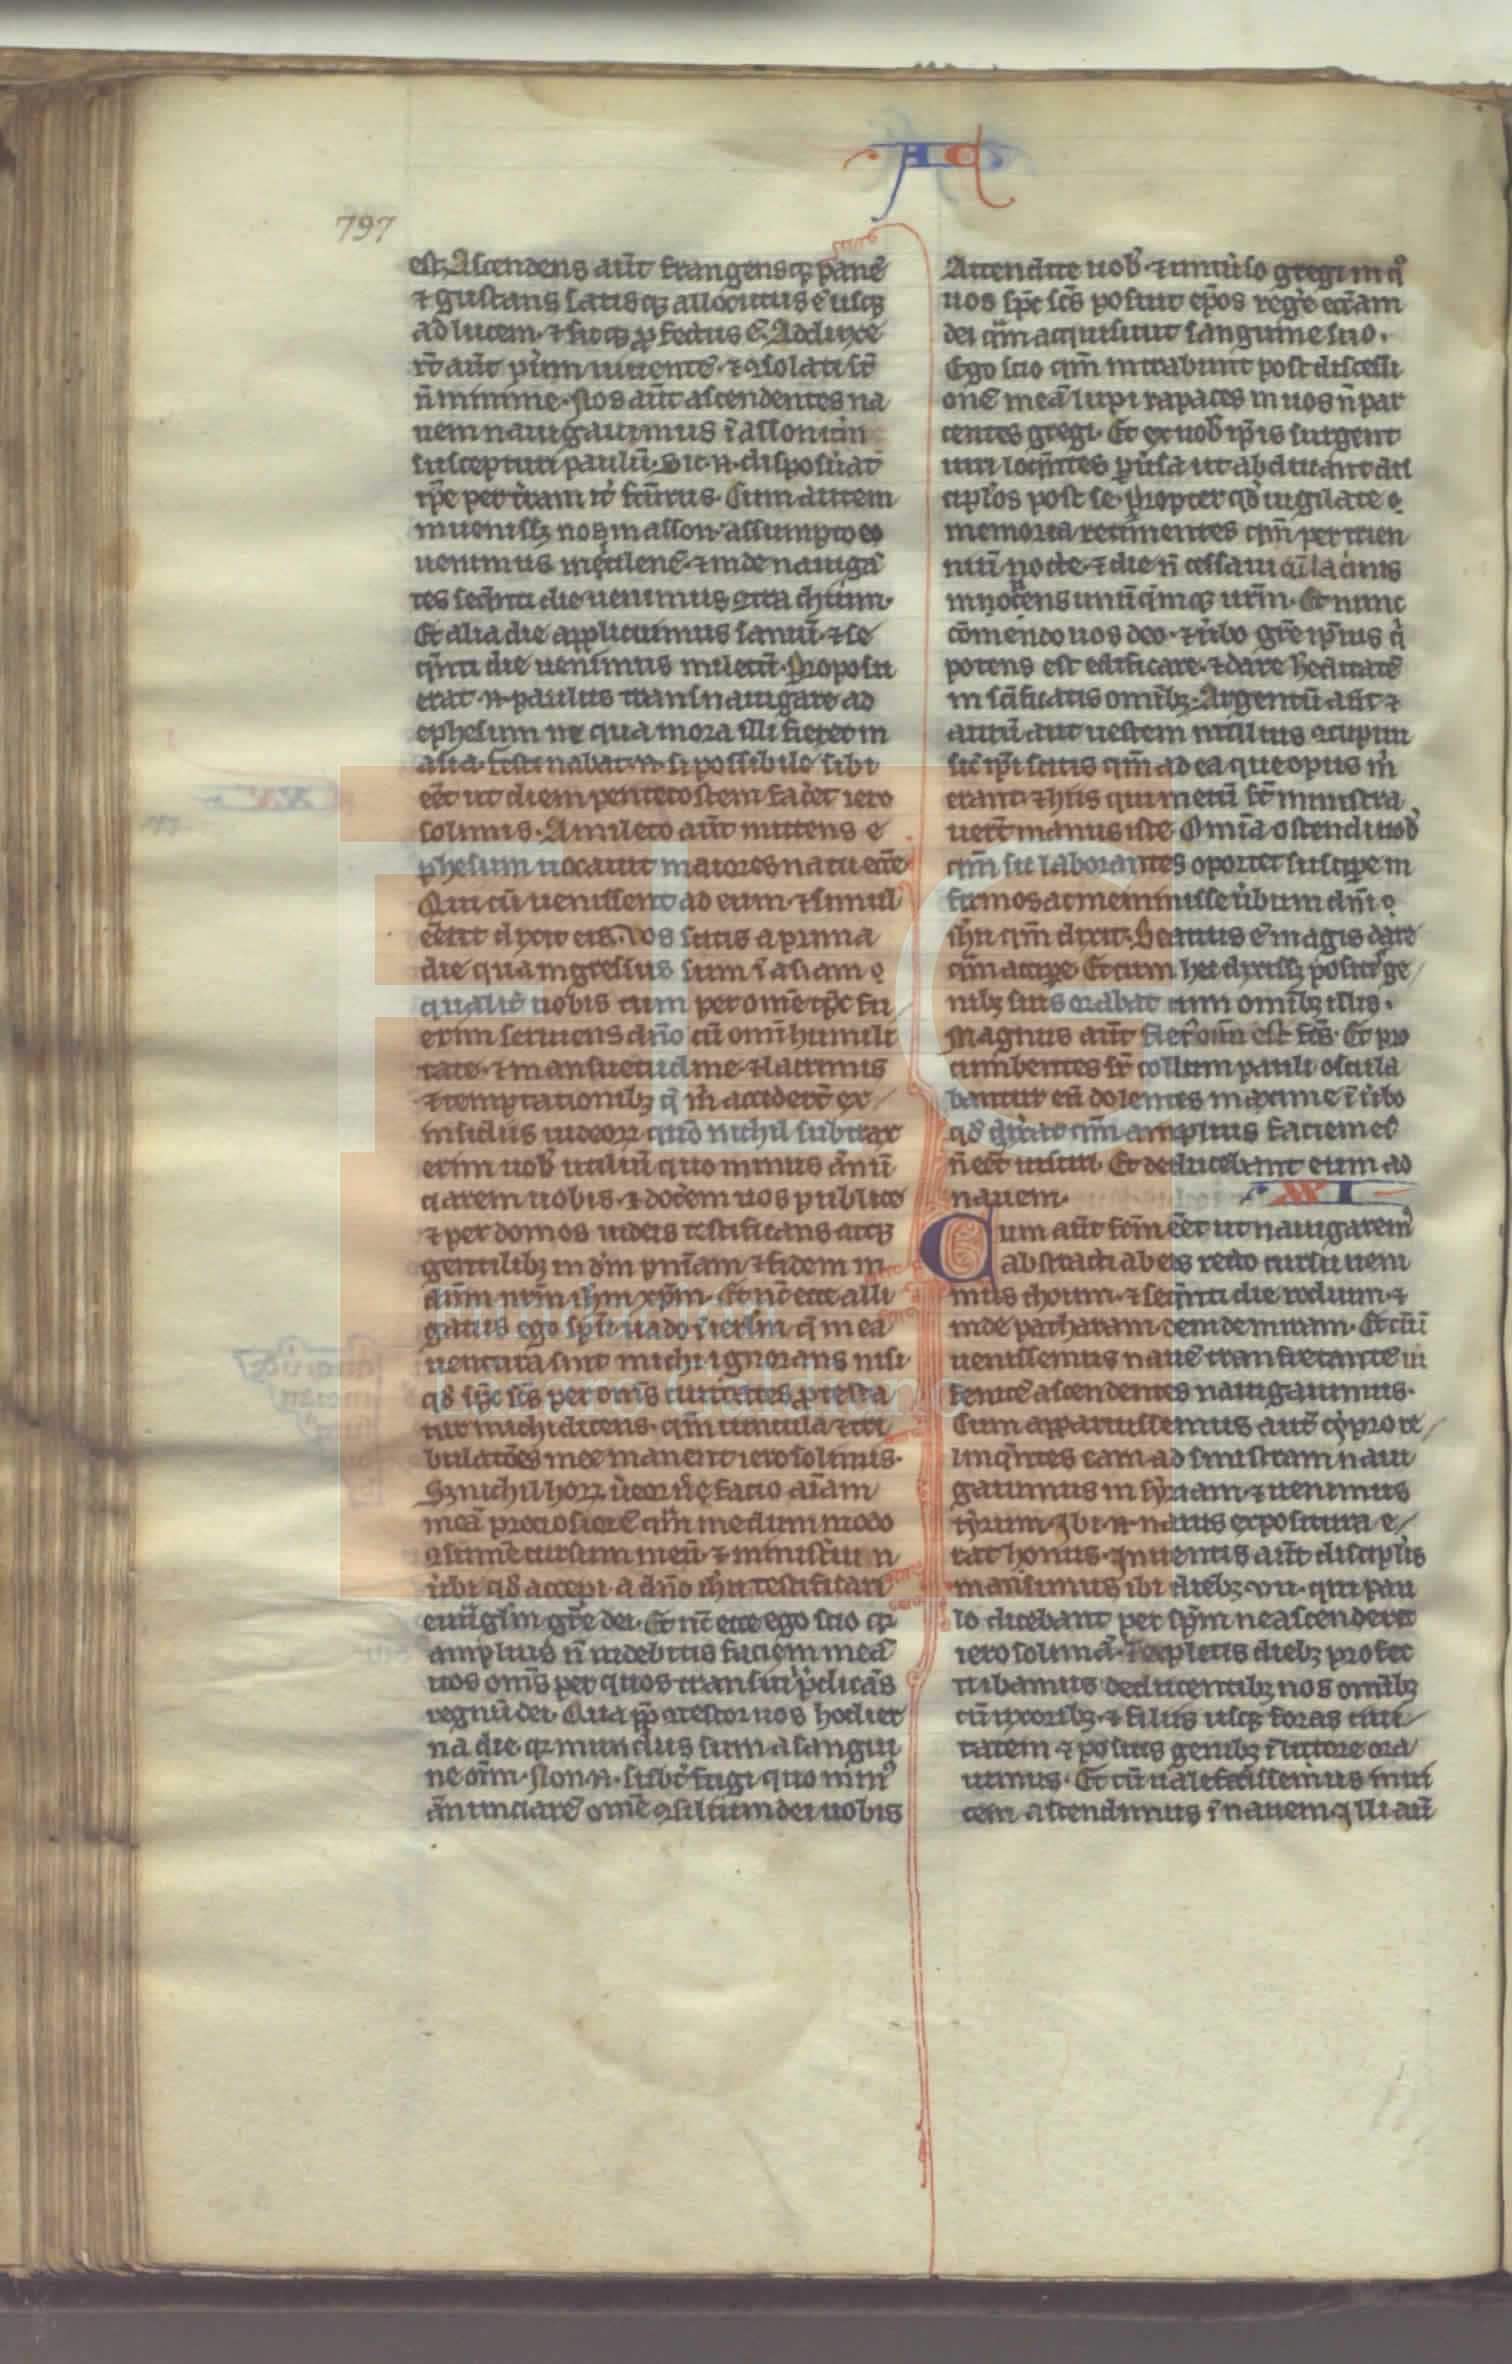 AC
797
est. Ascendens aut̄ frangensq; panē
⁊ gustans satisq; allocutus ē usq;
ad lucem. ⁊ sic ꝓfectus ē. Adduxe
rt̄ aut̄ pu͛um uiuentē. ⁊ ꝯsolati st̄
n̄ minime. Nos aut̄ ascendentes na
uem nauigauimus ī asson inde
suscepturi paulū. Sic .n. disposu͛at
ip̄e per tr̄am it͛ fctūrus. Cum autem
inuenissꝫ nos in asson assumpto eo
uenimus mitilenē. ⁊ inde nauigā
tes seq̄nti die uenimus ꝯtra chium.
Et alia die applicuimus samū. ⁊ se
q̄nti die uenimus miletū. Proposu
erat .n. paulus transnauigare ad
ephesum ne qua mora illi fieret in
asia. festinabat .n. si possibile sibi
eēt ut diem pentecostem fac͛et iero
solimis. A mileto aut̄ mittens e
phesum uocauit maiores natu ecc̄e
Qui cū uenissent ad eum ⁊ simul
eēnt dixit eis. Vos scitis a prima
die qua ingressus sum ī asiam
qualit͛ uobis cum per omē tp̄c fu
erim seruiens dn̄o cū omī humili
tate. ⁊ mansuetudine. ⁊ lacrimis
⁊ temptationibꝫ q̄ m̄ accidert̄ ex
insidiis iudeoꝝ quō nichil subtrax
erim uob̄ utiliū quo minus ān̄ū
tiarem uobis. ⁊ docērem uos publice
⁊ per domos iudeis testificans atq;
gentilibꝫ in dm̄ pn̄iam ⁊ fidem in
dn̄m nr̄m ih̄m xp̄m. Et nc̄ ecce alli
gatus ego sp̄u uado ī ierlm̄ q̄ in ea
uentura sint michi ignorans nisi
qd̄ sp̄c sc̄s per om̄s ciuitates ꝓtesta
tur michi dicens. qm̄ uincula ⁊ tri
bulatōes mee manent ierosolimis.
Sꝫ nichil hoꝝ u͛eor n̄c facio aīam
meā preciosiorē qm̄ me dum modo
ꝯsumē cursum meū. ⁊ ministeriū
u͛bi qd̄ accepi a dn̄o ih̄u testificari
euūglm̄ gr̄e dei. Et nc̄ ecce ego scio qꝛ
amplius n̄ uidebitis faciem meā
uos om̄s per quos transiui p̄dicās
regnū dei. Qua ꝓpt̄ ꝯtestor uos hodier
na die qꝛ mundus sum a sangui
ne oīm. Non .n. subt͛fugi quo min᷒
ānunciarē omē ꝯsilium dei uobis
Attendite uob̄. ⁊ uniu͛so gregi in q°
uos sp̄c sc̄s posuit ep̄os reg͛e ecc̄am
dei qm̄ acquisiuit sanguine suo.
Ego scio qm̄ intrabunt post discessi
onē meā lupi rapaces in uos n̄ par
centes gregi. Et ex uob̄ ip̄is surgent
uiri loq̄ntes ꝑu͛sa ut abducant disci
cipl̄os post se. Propter qd̄ uigilate
memoria retinentes qm̄ per trien
niū nocte. ⁊ die n̄ cessaui cū lac̓mis
monens unūq̄mq; ur̄m. Et nunc
cōmendo uos deo. ⁊ u͛bo gr̄e ip̄ius q̇
potens est edificare. ⁊ dare hereditatē
in sc̄ificatis omībꝫ. Argentū aut̄ ⁊
aurū aut uestem nullius ꝯcupiui
sic̄ ip̄i scitis qm̄ ad ea que opus m̄
erant ⁊ hiis qui mecū st̄ ministra
uert̄ manus iste. Omīa ostendi uob̄
qm̄ sic laborantes oportet suscip͛e in
firmos ac meminisse u͛bum dn̄i
ih̄u qm̄ dixit. Beatius ē magis dare
qm̄ accip͛e. Et cum hec dixissꝫ positis ge
nibꝫ suis orabat cum omībꝫ illis.
Magnus aut̄ flet᷒ oīm est fcs̄. Et pro
cumbentes sr̄ collum pauli oscula
bantur eū dolentes maxime ī u͛bo
qd̄ dix͛at qm̄ amplius faciem ei᷒
n̄ eēt uisuri. Et deducebant eum ad
nauem.
XXI
Cum aut̄ fcm̄ eēt ut nauigarem᷒
abstracti ab eis recto cursu ueni
mus choum. ⁊ seq̄nti die rodum. ⁊
inde patharam. deinde miram. Et cū
uenissemus nauē transfretantē in
fenicē ascendentes nauigauimus.
Cum apparuissemus aut̄ cypro re
linq̄ntes eam ad sinistram naui
gauimus in syriam. ⁊ uenimus
tyrum. Ibi .n. nauis expositura e
rat honus. Inuentis aut̄ discipl̄is
mansimus ibi diebꝫ .vii. qui pau
lo dicebant per sp̄m ne ascenderet
ierosolimā. Et expletis diebꝫ profec
ti ibamus deducentibꝫ nos omībꝫ
cū uxoribꝫ. ⁊ filiis usq; foras ciui
tatem ⁊ positis genibꝫ ī litore ora
uimus. Et cū ualefacissemus inui
cem ascendimus ī nauem. illi aut̄